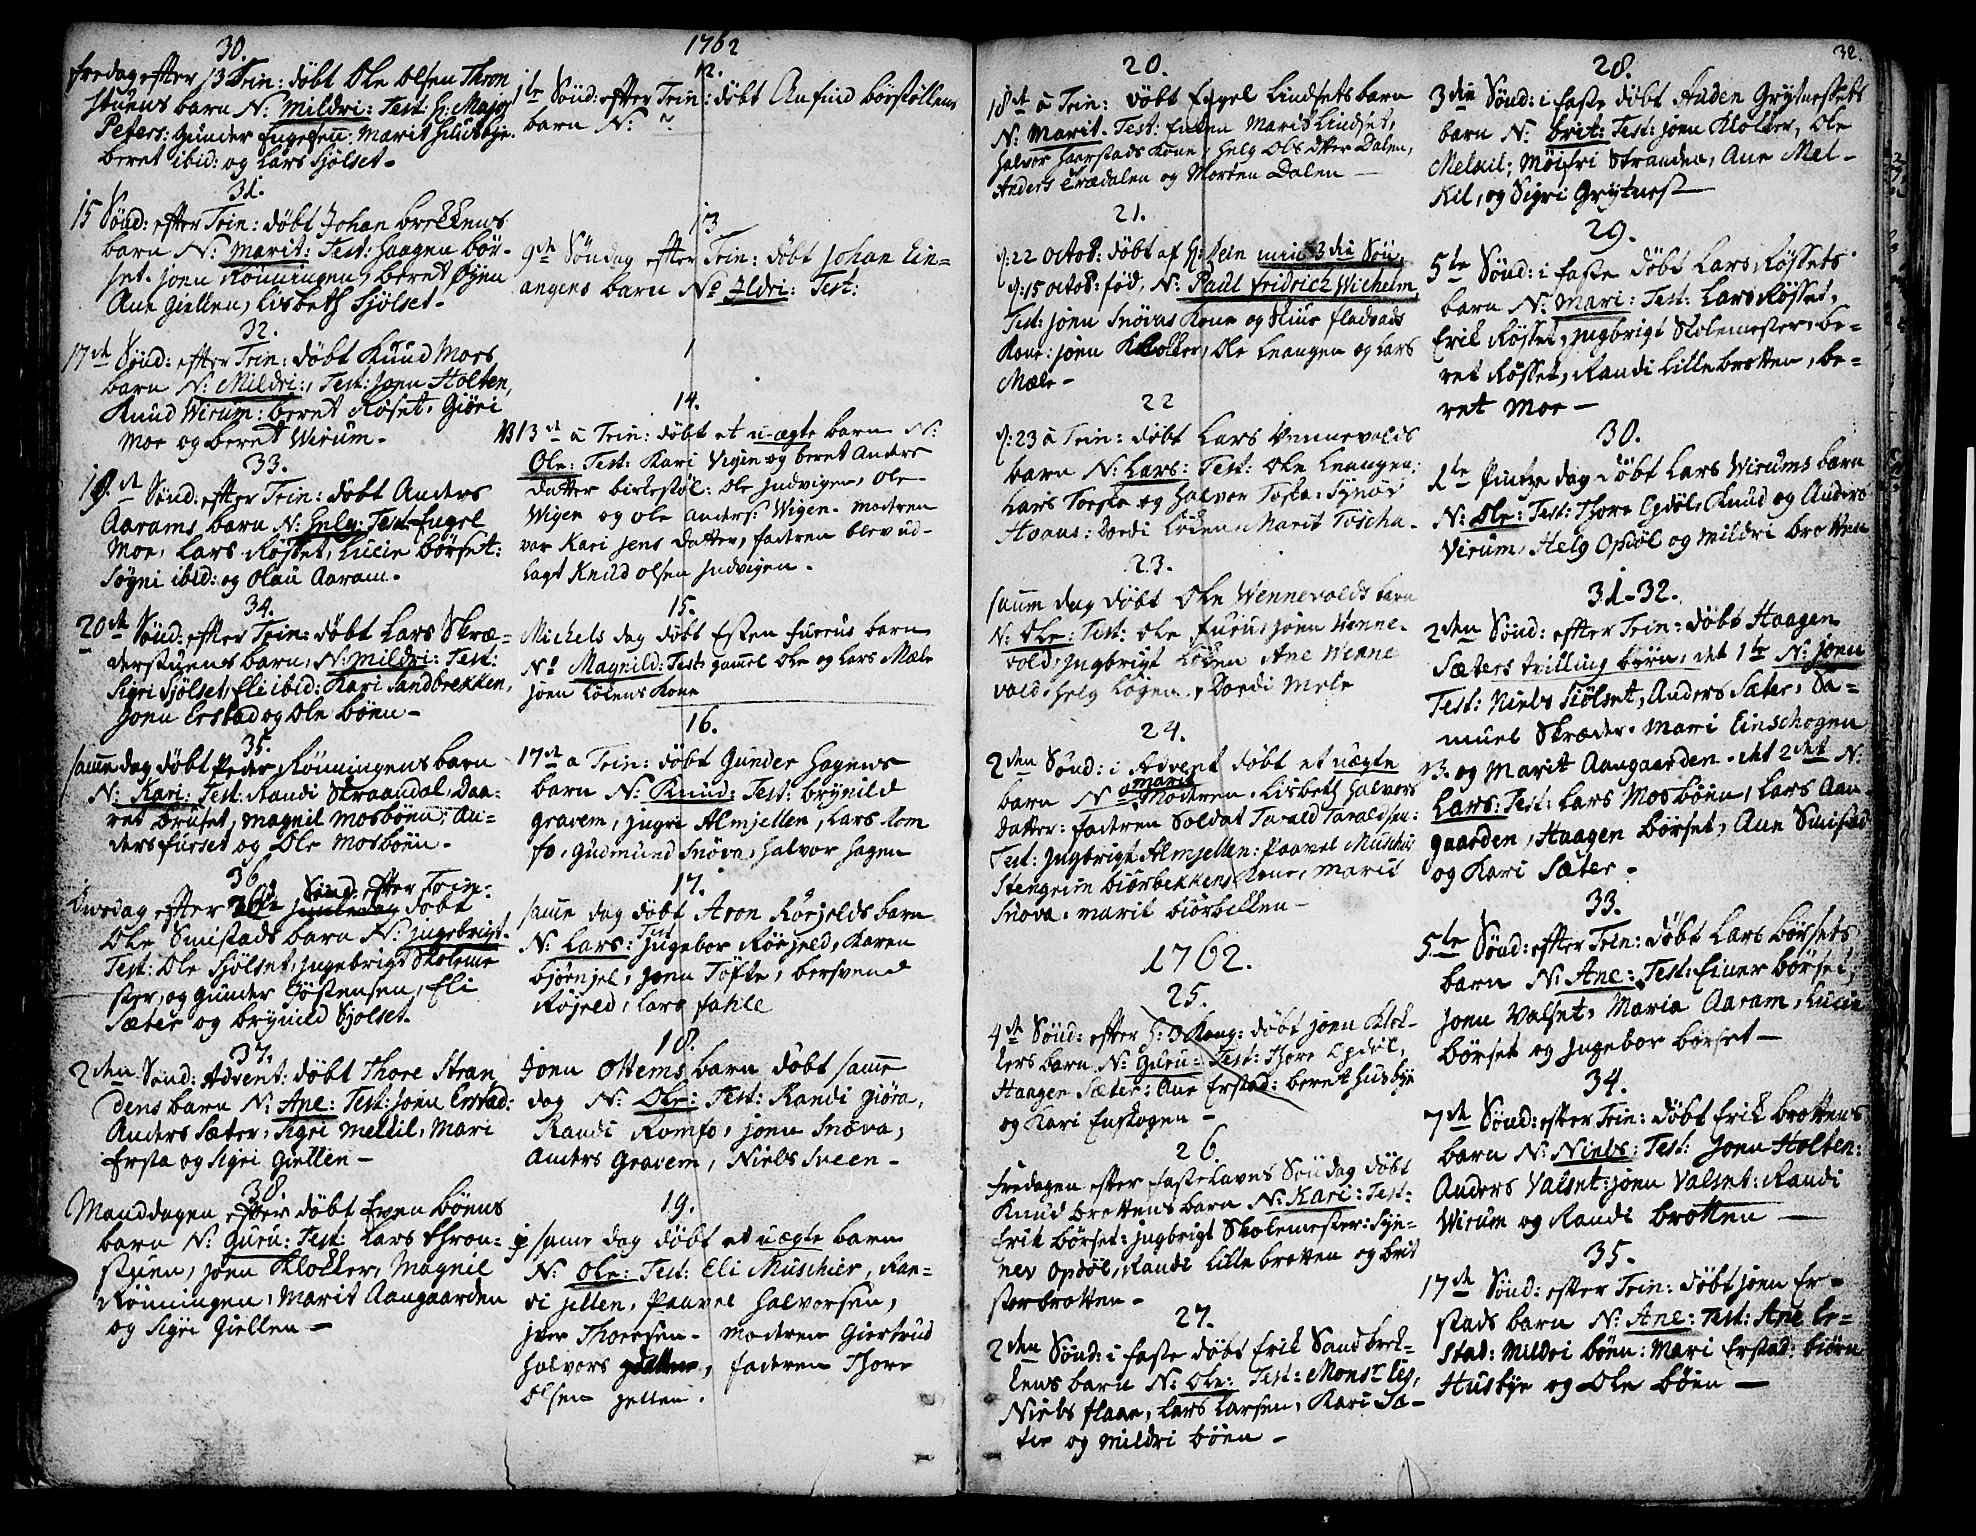 30.
fredag efter 13 Trin: döbt Ole Olsen Thron
stuens barn N: Mildri: Test: H: Major
Peters: Gunder Engelsen: Marit Husbye.
beret ibid: og Lars Sjölset.
31.
15 Sönd: efter Trin: döbt Johan brekkens
barn N: Marit: Test: Haagen bör-
set. joen Rönningen, beret Öyen
Ane Giellen, Lisbeth Sjölset.
32.
17de Sönd: efter Trin: döbt Knud Moes
barn N: Mildri:, Test: Joen Holten,
Knud Wirum: beret Röset. Giöri
Moe og beret Wirum.
33.
19.de Sönd: efter Trin: döbt Anders
Aarams barn N: Helg: Test Engel
Moe, Lars Rösset, Lucie Börset:
Sögni ibid: og Olau Aaram.
34.
20de Sönd: efter Trin: döbt Lars Skræ-
derstuens barn, N: Mildri: Test:
Sigri Sjölset, Eli ibid: Kari Sandbrekken,
Joen Erstad og Ole böen-
35.
samme dag döbt Peder Rönningens barn
N: Kari: Test: Randi Straandal, Daa-
ret bruset, Magnil Mosböen, An-
ders furset og Ole Mosböen.
36.
Tirsdag efter Sönd: efter Trin: döbt
Ole Smistads barn N: Ingebrigt.
Test: Ole Sjölset, Ingebrigt Skoleme
ster, og Gunder Göstensen, Eli
Sæter og brynild Sjolset.
37.
2den Sönd: Advent: döbt Thore Stran
dens barn N: Ane: Test: joen Erstad:
Anders Sæter, Sigri Melkil, Mari
Ersta og Sigri Giellen-
38
Manddagen efter döbt Ewen böens
barn N: Guru: Test: Lars thron-
stuen, joen Klokker, Magnil
Rönningen, Marit Aangaarden
og Sigri Giellen-
1762
12.
1te Sönd: efter Trin: döbt Anfind börstöllens
barn N: ?
13
9de Söndag efter Trin: döbt Johan Ein-
angens barn No Ildri: Test:
14.
NB 13de à Trin: döbt et u-ægte barn N:
Ole: Test: Kari Vigen og beret Anders
datter birkestöl: Ole Indvigen, Ole
Wigen og Ole Anders: Wigen. moderen
var Kari Jens datter, faderen blev ud-
lagt Knud Olsen Indvigen.
15.
Michels dag döbt Esten Furrus barn
No Magnild: Test: gammel Ole og Lars Mæle
joen Lökens Kone
16.
17de a Trin: döbt Gunder Hagens
barn N: Knud: Test: brynild
Gravem, Ingri Almjellen, Lars Rom
fo, Gudmund Snöva, Halvor Hagen
17.
samme dag döbt Aron Röejelds barn
N: Lars: Test Ingebor Röejeld, Karen
björnjel, Joen Töfte, bersvend
Röjeld, Lars fahle
18.
Joen Ottems barn döbt samme
dag N: Ole: Test: Randi Giöra,
Randi Romfo, joen Snöva,
Anders Gravem, Niels Sveen-
19.
samme dag döbt et uægte barn
N: Ole: Test: Eli Muschier, Ran-
di jellen, Paavel Halvorsen,
Iver Thoresen. moderen Giertrud
Halvors, faderen Thore
Olsen jellen.
20.
18de à Trin: döbt Engel Lindsets barn
N: Marit. Test: Enken Marit Lindset,
Halvor Haarstads Kone, Helg Ols datter Dalen,
Anders Trædalen og Morten Dalen-
21.
d: 22 Octob: döbt af H: min 3die Sön,
d: 15 octob: föd, N: Paul Fridrich Wichelm,
Test: joen Snövas Kone og Fladvads
Kone: joen Klokker, Ole Leangen og Lars
Mæle-
22
d: 23 à Trin: döbt Lars Wennevolds
barn N: Lars: Test: Ole Leangen,
Lars Toske og Halvor Toske: Synöv
Hoaas: Dordi Löken, Marit Toscha.
23.
samme dag döbt Ole Wennevolds barn
N: Ole: Test: Ole Furu, joen Wenne-
vold, Ingbrigt Löken Ane Wenne
vald, Helg Lögen, Dordi Mele
24.
2den Sönd: i Advent döbt et uægte
barn N Marit Moderen. Lisbeth Halvors
datter: faderen Soldat Tarald Taraldsen:
Test: Ingbrigt Almjellen: Paavel Muschie
Stengrim biörbekkens Kone, Marit
Snöva. Marit biörbekken-
1762.
25.
4de Sönd: efter H: 3 Kong: döbt joen Klok-
kers barn N: Guru: Test: Thore Opdöl,
Haagen Sæter: Ane Erstad: beret Husbye
og Kari Enskogen-
26
fredagen efter fastelavns Söndag döbt
Knud brottens barn N: Kari: Test:
Erik börset: Ingbrigt Skolemester: Syn-
nev Opdöl, Randi Lillebrotten og brit
storbrotten-
27.
2den Sönd: i faste döbt Erik Sandbrek-
kens barn N: Ole: Test: Mons Lies,
Niels flaae, Lars Larsen, Kari Sæ-
ter og Mildri böen-
32.
28.
3die Sönd: i faste döbt Anden Grytnessets
barn N: brit: Test: joen Klokker, Ole
Melkil; Möifri Stranden, Ane Mel-
kil, og Sigri Grytnes-
29.
5te Sönd: i faste döbt Lars Rössets
barn N: Mari: Test: Lars Rösset,
Erik Rösset, Ingbrigt Skolemester, be-
ret Rösset, Randi Lillebrotten, be-
ret Moe-
30.
1te Pintze dag döbt Lars Wirums barn
N: Ole: Test: Thore Opdöl, Knud og Anders
Virum, Helg Opdöl og Mildri brotten
31-32.
2den Sönd: efter Trin: döbt Haagen
Sæters tvilling börn, det 1te N: joen
Test: Niels Siölset, Anders Sæter, Sa-
muel Skræder. Mari Einschogen
og Marit Aangaarden. det 2det N:
Lars: Test: Lars Mosböen, Lars Aan-
gaarden, Haagen börset, Ane Smistad
og Kari Sæter-
33.
5te Sönd: efter Trin: döbt Lars börsets
barn N: Ane: Test: Einer börset,
Joen Valset, Maria Aaram, Lucie
börset og Ingebor börset-
34.
7de Sönd: efter Trin: döbt Erik brottens
barn N: Niels: Test: Joen Holten:
Anders Valset: joen Valset: Randi
Wirum og Randi brotten-
35.
17de Sönd: efter Trin: döbt joen Er-
stads barn N: Ane: Test: Ane Er-
stad: Mildri böen: Mari Erstad: biörn
Husbye og Ole böen-